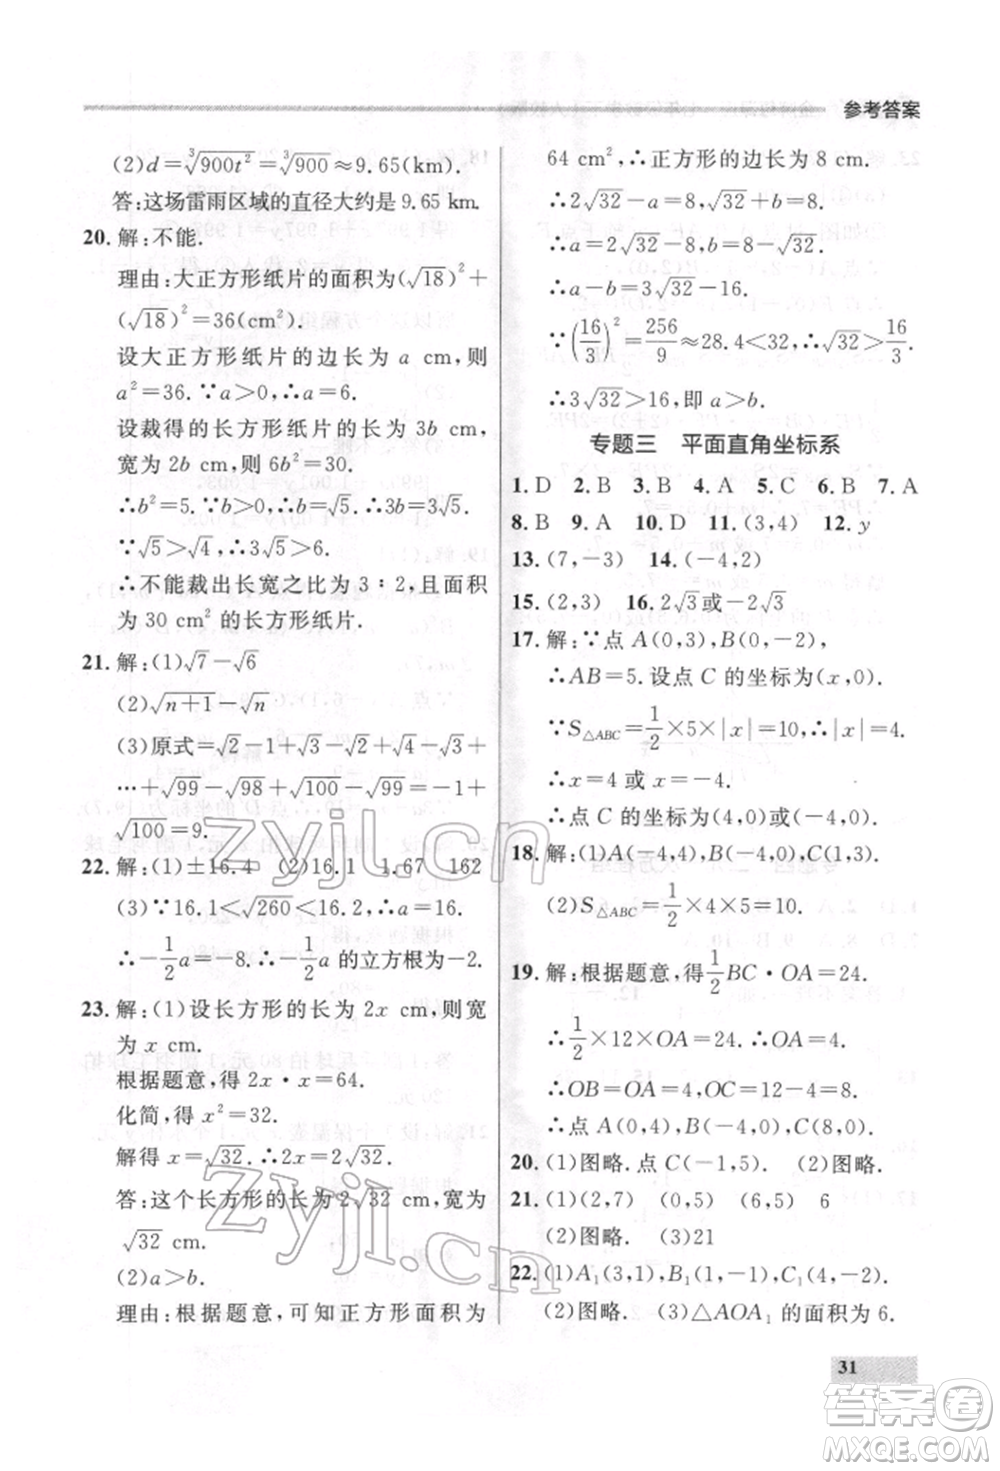 参考答案
(2)d=∛900t²=∛900≈9.65(km).
答:这场雷雨区域的直径大约是 9.65 km.
20. 解:不能.
理由:大正方形纸片的面积为(√18)²+
(√18)²=36(cm²).
设大正方形纸片的边长为 a cm,则
a²=36.∵a>0,∴a=6.
设裁得的长方形纸片的长为 3b cm,
宽为 2b cm,则 6b²=30.
∴b²=5.∵b>0,∴b=√5.∴3b=3√5.
∵√5>√4,∴√5>2.∴3√5>6.
∴不能裁出长宽之比为 3∶2,且面积
为 30 cm² 的长方形纸片.
21. 解:(1)√7-√6
(2)√n+1-√n
(3)原式=√2-1+√3-√2+√4-√3
+…+√99-√98+√100-√99=-1+
√100=9.
22. 解:(1)±16.4 (2)16.1 1.67 162
(3)∵16.1<√260<16.2,∴a=16.
∴-1/2a=-8.∴-1/2a 的立方根为-2.
23. 解:(1)设长方形的长为 2x cm,则宽
为 x cm.
根据题意,得 2x·x=64.
化简,得 x²=32.
解得 x=√32.∴2x=2√32.
答:这个长方形的长为 2√32 cm,宽为
√32 cm.
(2)a>b.
理由:根据题意,可知正方形面积为
64 cm²,∴正方形的边长为 8 cm.
∴2√32-a=8,√32-b=8.
∴a=2√32-8,b=8-√32.
∴a-b=3√32-16.
∵(16/3)²=256/9≈28.4<32,∴√32>16/3.
∴3√32>16,即 a>b.
专题三 平面直角坐标系
1. D 2. B 3. B 4. A 5. C 6. B 7. A
8. B 9. A 10. D 11. (3,4) 12. y
13. (7,-3) 14. (-4,2)
15. (2,3) 16. 2√3或-2√3
17. 解:∵点 A(0,3),B(0,-2),
∴AB=5. 设点 C 的坐标为(x,0).
∵S△ABC=1/2×5×|x|=10,∴|x|=4.
∴x=4 或 x=-4.
∴点 C 的坐标为(4,0)或(-4,0).
18. 解:(1)A(-4,4),B(-4,0),C(1,3).
(2)S△ABC=1/2×4×5=10.
19. 解:根据题意,得1/2BC·OA=24.
∴1/2×12×OA=24.∴OA=4.
∴OB=OA=4,OC=12-4=8.
∴点 A(0,4),B(-4,0),C(8,0).
20. (1)图略.点 C(-1,5). (2)图略.
21. (1)(2,7) (0,5) (6,5) 6
(2)图略. (3)21
22. (1)A₁(3,1),B₁(1,-1),C₁(4,-2)
(2)图略. (3)△AOA₁ 的面积为 6.
31
zyjl.cn
zyjl.cn
答案圈
MXQE.COM